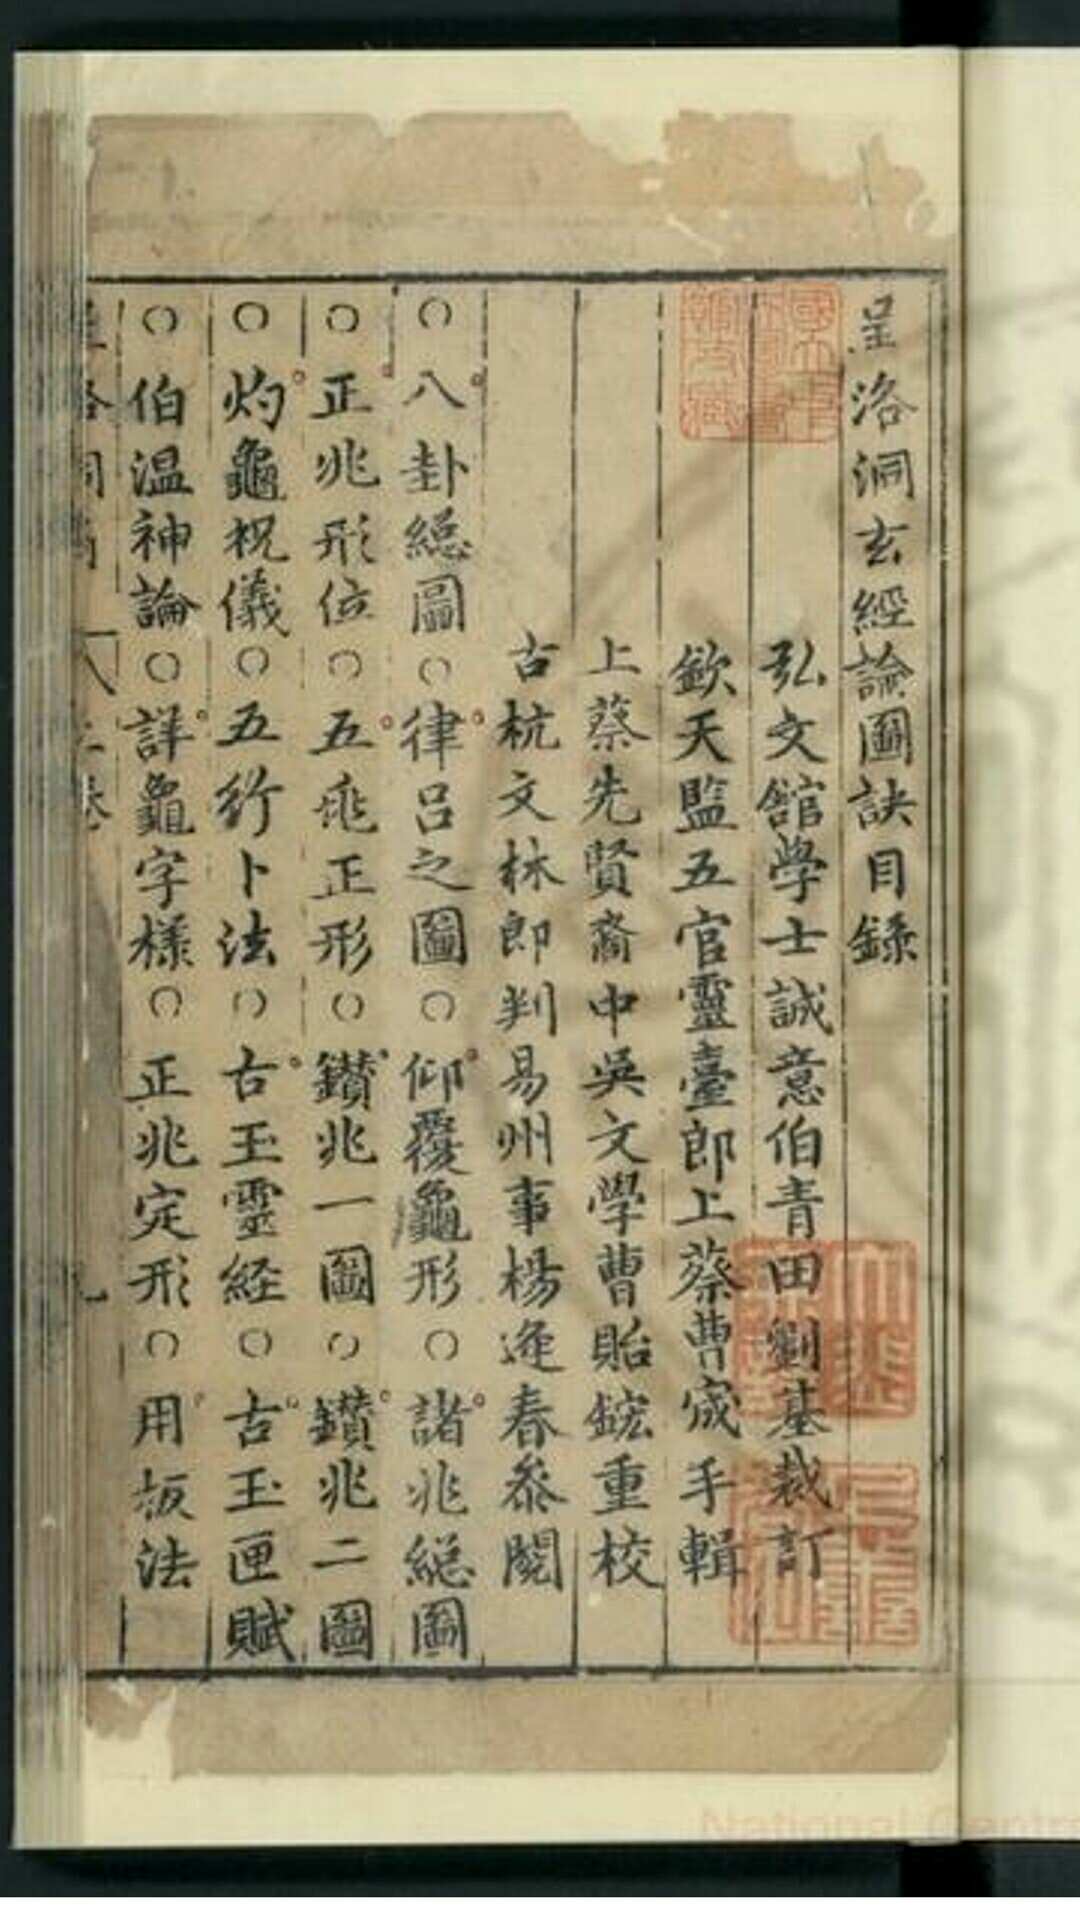 呈洛洞玄經論圖訣目錄
弘文舘學士誠意伯青田劉基裁訂
欽天監五官靈臺郎上蔡曹宬手輯
上蔡先賢裔中吳文學曹貽鋐重校
古杭文林郎判易州事楊逢春叅閱
○八卦縂圖○律呂之圖○仰覆龜形○諸兆縂圖
○正兆形位○五兆正形○鑚兆一圖○鑚兆二圖
○灼龜祝儀○五行卜法○古玉靈経○古玉匣賦
○伯温神論○詳龜字樣○正兆定形○用板法
National Centr